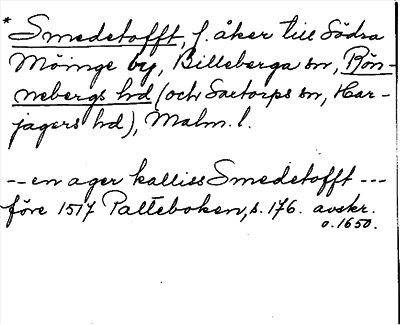 * Smedetofft, f. åker till Södra
Möinge by, Billeberga sn, Rön-
nebergs hd (och Saxtorps sn, Har-
jagers hd), Malm. l.
-- en ager kalliss Smedetofft ---
före 1517 Palteboken, s. 176. avskr.
o. 1650.